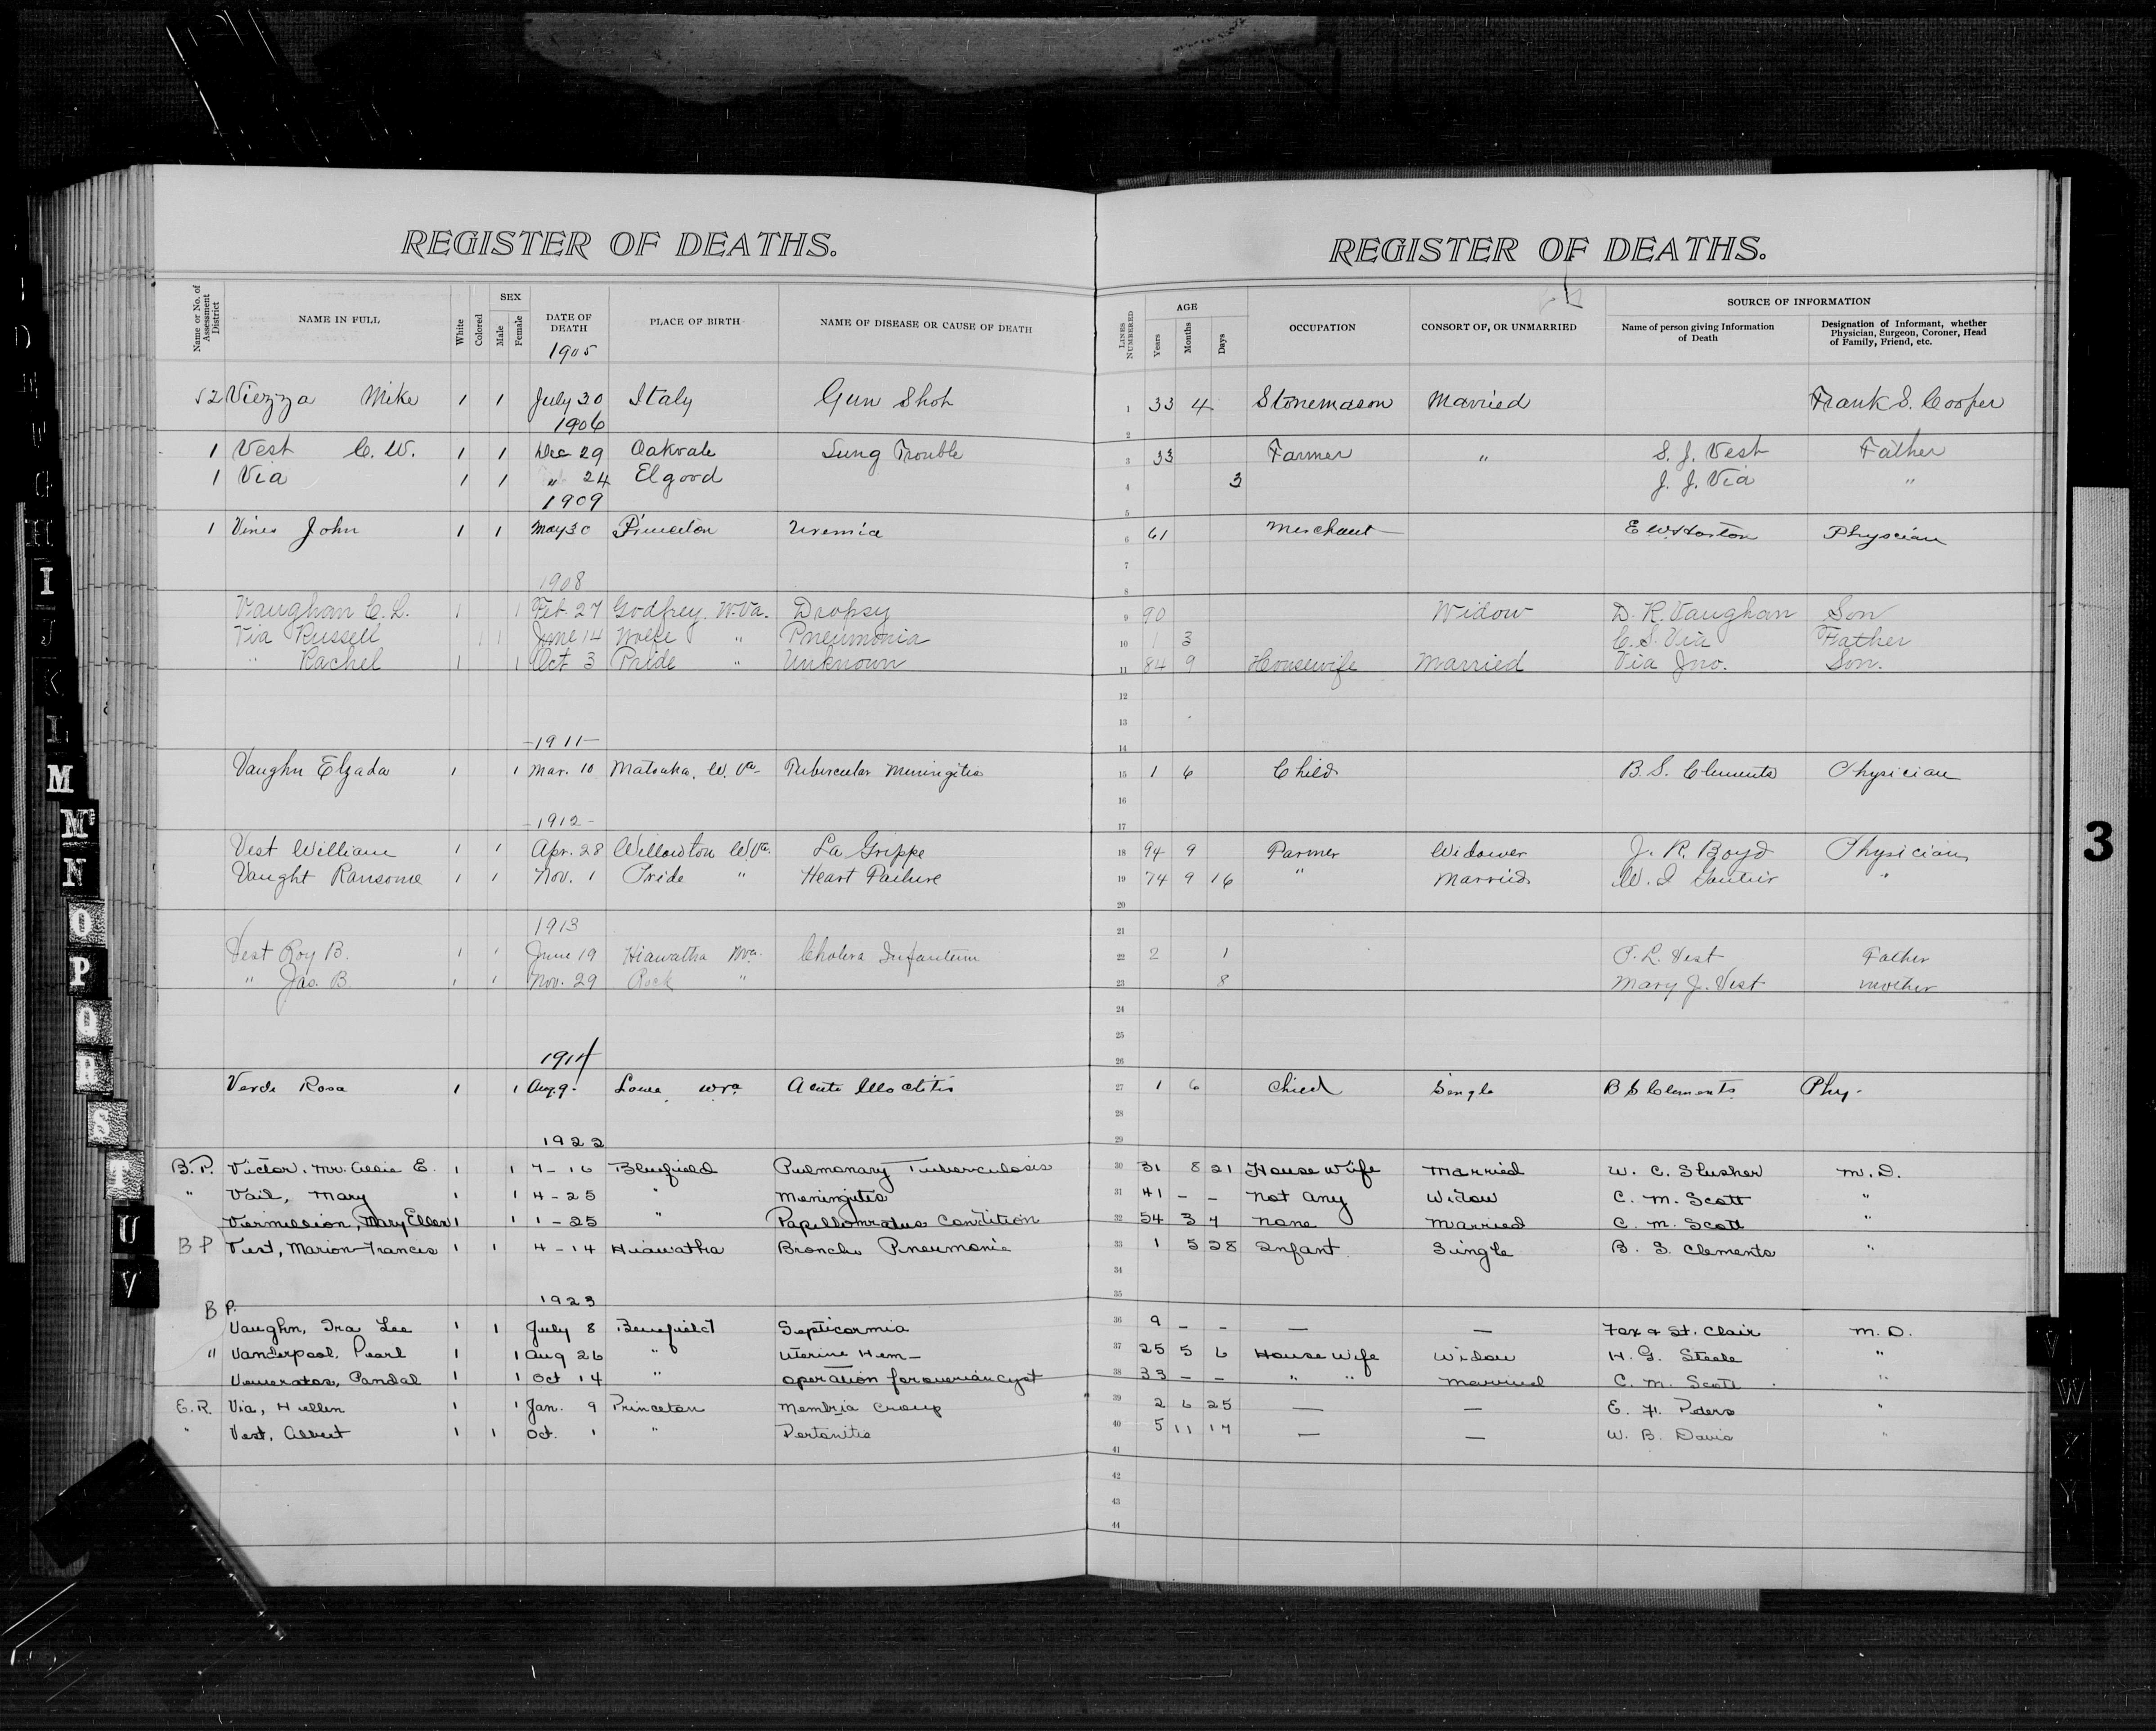 REGISTER OF DEATHS.
Name or No. of Assessment District
NAME IN FULL
White
Colored
SEX
Male
Female
DATE OF DEATH
PLACE OF BIRTH
NAME OF DISEASE OR CAUSE OF DEATH
REGISTER OF DEATHS.
LINES NUMBERED
AGE
Years
Months
Days
OCCUPATION
CONSORT OF, OR UNMARRIED
SOURCE OF INFORMATION
Name of person giving Information of Death
Designation of Informant, whether Physician, Surgeon, Coroner, Head of Family, Friend, etc.
1905
52 Viezza Mike 1 1 July 30 Italy Gun Shot 1 33 4 Stonemason Married Frank S. Cooper
1906
2
1 Vest C. W. 1 1 Dec 29 Oakvale Lung Trouble 3 33 Farmer " S. J. Vest Father
1 Via 1 1 " 24 Elgood 4 3 J. J. Via "
1909
5
1 Vines John 1 1 May 30 Princeton Uremia 6 61 Merchant E W Horton Physcian
7
1908
8
Vaughan C. L. 1 1 Feb. 27 Godfrey. W.Va. Dropsy 9 90 Widow D. R. Vaughan Son
Via Russell 1 1 June 14 Wolfe " Pneumonia 10 1 3 C. S. Via Father
" Rachel 1 1 Oct 3 Pride " Unknown 11 84 9 Housewife Married Via Jno. Son.
12
13
-1911-
14
Vaughn Elzada 1 1 Mar. 10 Matoaka, W. Va- Tubercular Meningitis 15 1 6 Child B. S. Clements Physician
16
-1912-
17
Vest William 1 1 Apr. 28 Willowton WVa. La Grippe 18 94 9 Farmer Widower J. R. Boyd Physician
Vaught Ransome 1 1 Nov. 1 Pride " Heart Failure 19 74 9 16 " Married W. I "
20
1913
21
Vest Roy B. 1 1 June 19 Hiawatha Wva. Cholera Infantum 22 2 1 P. L. Vest Father
" Jas. B. 1 1 Nov. 29 Rock " 23 8 Mary J. Vest Mother
24
25
1914
26
Verde Rosa 1 1 Aug. 9. Wva Acute 27 1 6 Child Single B S Clements Phy.
28
1922
29
B. P. Victor, Mr. Allie E. 1 1 7-16 Bluefield Pulmonary Tuberculosis 30 31 8 21 House wife Married W. C. Slusher M. D.
" Vail, Mary 1 1 4-25 " Meningitis 31 41 - - not any Widow C. M. Scott "
Viermillion, Mary Ellen 1 1 1-25 " Papillomratus Condition 32 54 3 7 none Married C. M. Scott "
B P Vest, Marion Frances 1 1 4-14 Hiawatha Broncho Pneumonia 33 1 5 28 Infant Single B. S. Clements "
34
1923
35
B P.
Vaughn, Ira Lee 1 1 July 8 Bluefield Septicormia 36 9 - - — — Fox & St. Clair M. D.
" Vanderpool, Pearl 1 1 Aug 26 " Uterine Hem- 37 25 5 6 House Wife Widow H. G. Steele "
Pandal 1 1 Oct 14 " operation for overian cyst 38 33 - - " " Married C. M. Scott "
E. R. Via, Hellen 1 1 Jan. 9 Princeton Membria Croup 39 2 6 25 — — E. H. Peters "
" Vest, Albert 1 1 Oct. 1 " Pertonitis 40 5 11 17 — — W. B. Davis "
41
42
43
44
I
D
W
G
H
I
J
K
L
M
Mc
N
O
P
Q
R
S
T
U
V
3
V
W
Y